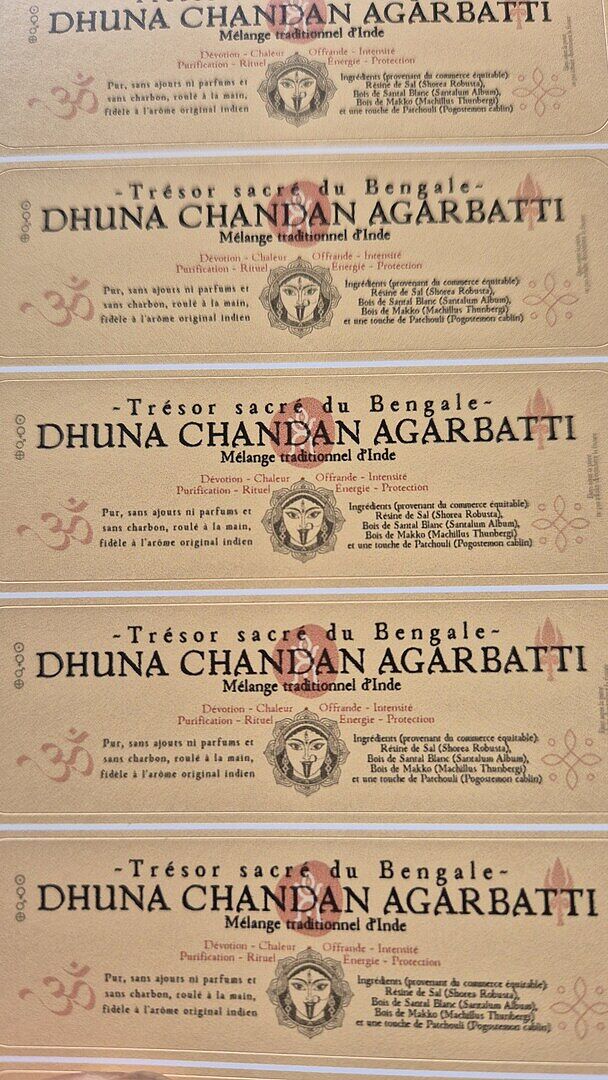 DHUNA CHANDAN AGARBATTI
Mélange traditionnel d'Inde
Dévotion - Chaleur Offrande - Intensité
Purification - Rituel Énergie - Protection
Pur, sans ajouts ni parfums et
sans charbon, roulé à la main,
fidèle à l'arôme original indien
Ingrédients (provenant du commerce équitable):
Résine de Sal (Shorea Robusta),
Bois de Santal Blanc (Santalum Album),
Bois de Makko (Machillus Thunbergi)
et une touche de Patchouli (Pogostemon cablin)
ॐ
~Trésor sacré du Bengale~
DHUNA CHANDAN AGARBATTI
Mélange traditionnel d'Inde
Dévotion - Chaleur Offrande - Intensité
Purification - Rituel Énergie - Protection
Pur, sans ajouts ni parfums et
sans charbon, roulé à la main,
fidèle à l'arôme original indien
Ingrédients (provenant du commerce équitable):
Résine de Sal (Shorea Robusta),
Bois de Santal Blanc (Santalum Album),
Bois de Makko (Machillus Thunbergi)
et une touche de Patchouli (Pogostemon cablin)
ॐ
~Trésor sacré du Bengale~
DHUNA CHANDAN AGARBATTI
Mélange traditionnel d'Inde
Dévotion - Chaleur Offrande - Intensité
Purification - Rituel Énergie - Protection
Pur, sans ajouts ni parfums et
sans charbon, roulé à la main,
fidèle à l'arôme original indien
Ingrédients (provenant du commerce équitable):
Résine de Sal (Shorea Robusta),
Bois de Santal Blanc (Santalum Album),
Bois de Makko (Machillus Thunbergi)
et une touche de Patchouli (Pogostemon cablin)
ॐ
~Trésor sacré du Bengale~
DHUNA CHANDAN AGARBATTI
Mélange traditionnel d'Inde
Dévotion - Chaleur Offrande - Intensité
Purification - Rituel Énergie - Protection
Pur, sans ajouts ni parfums et
sans charbon, roulé à la main,
fidèle à l'arôme original indien
Ingrédients (provenant du commerce équitable):
Résine de Sal (Shorea Robusta),
Bois de Santal Blanc (Santalum Album),
Bois de Makko (Machillus Thunbergi)
et une touche de Patchouli (Pogostemon cablin)
ॐ
~Trésor sacré du Bengale~
DHUNA CHANDAN AGARBATTI
Mélange traditionnel d'Inde
Dévotion - Chaleur Offrande - Intensité
Purification - Rituel Énergie - Protection
Pur, sans ajouts ni parfums et
sans charbon, roulé à la main,
fidèle à l'arôme original indien
Ingrédients (provenant du commerce équitable):
Résine de Sal (Shorea Robusta),
Bois de Santal Blanc (Santalum Album),
Bois de Makko (Machillus Thunbergi)
et une touche de Patchouli (Pogostemon cablin)
ॐ